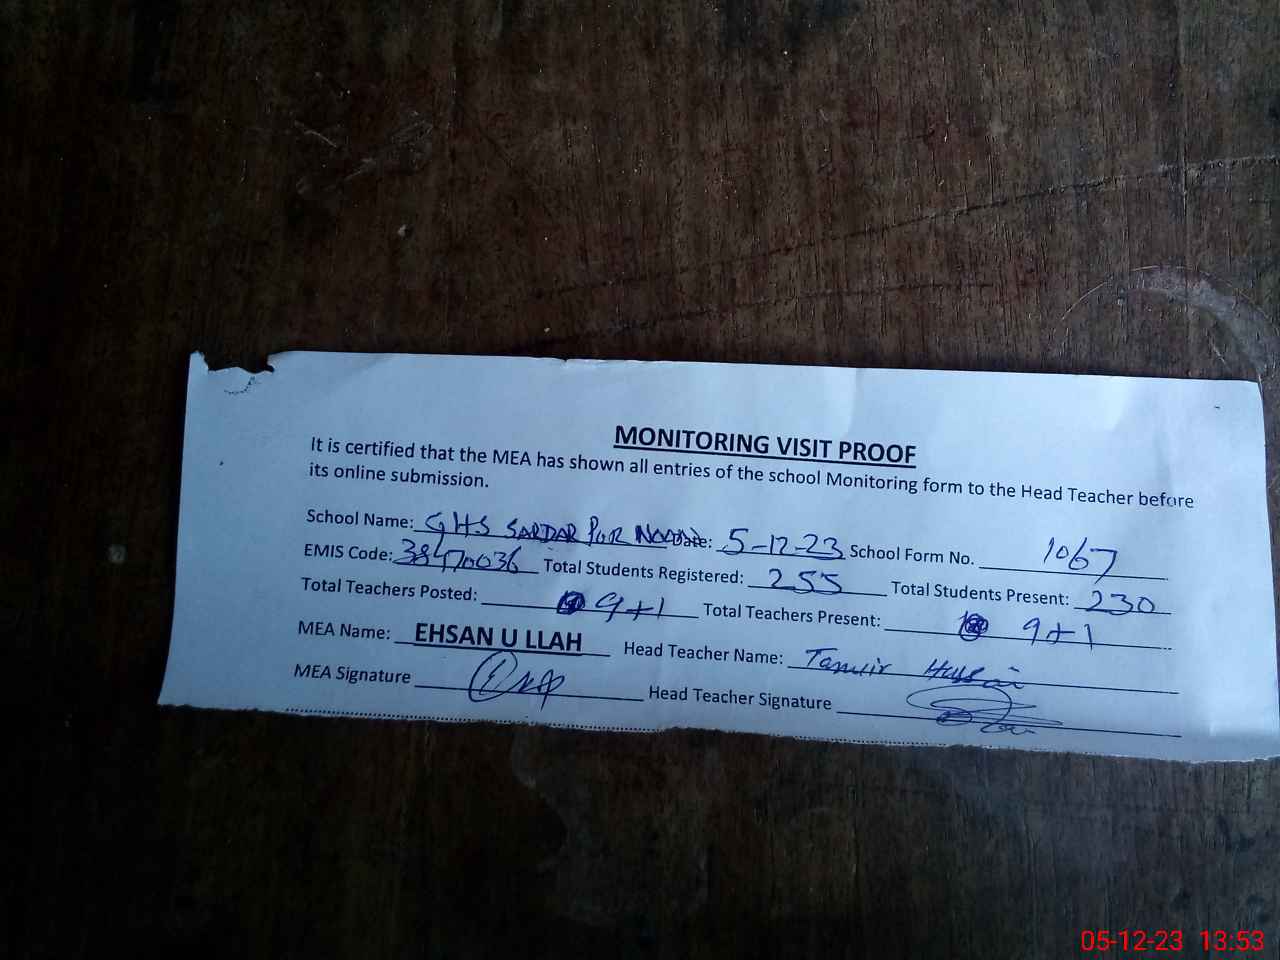 MONITORING VISIT PROOF
It is certified that the MEA has shown all entries of the school Monitoring form to the Head Teacher before
its online submission.
School Name: GHS SARDAR PUR NOON Date: 5-12-23 School Form No. 1067
EMIS Code: 38470036 Total Students Registered: 255 Total Students Present: 230
Total Teachers Posted: 9+1 Total Teachers Present: 9+1
MEA Name: EHSAN U LLAH Head Teacher Name: Hussain
MEA Signature Head Teacher Signature
05-12-23 13:53